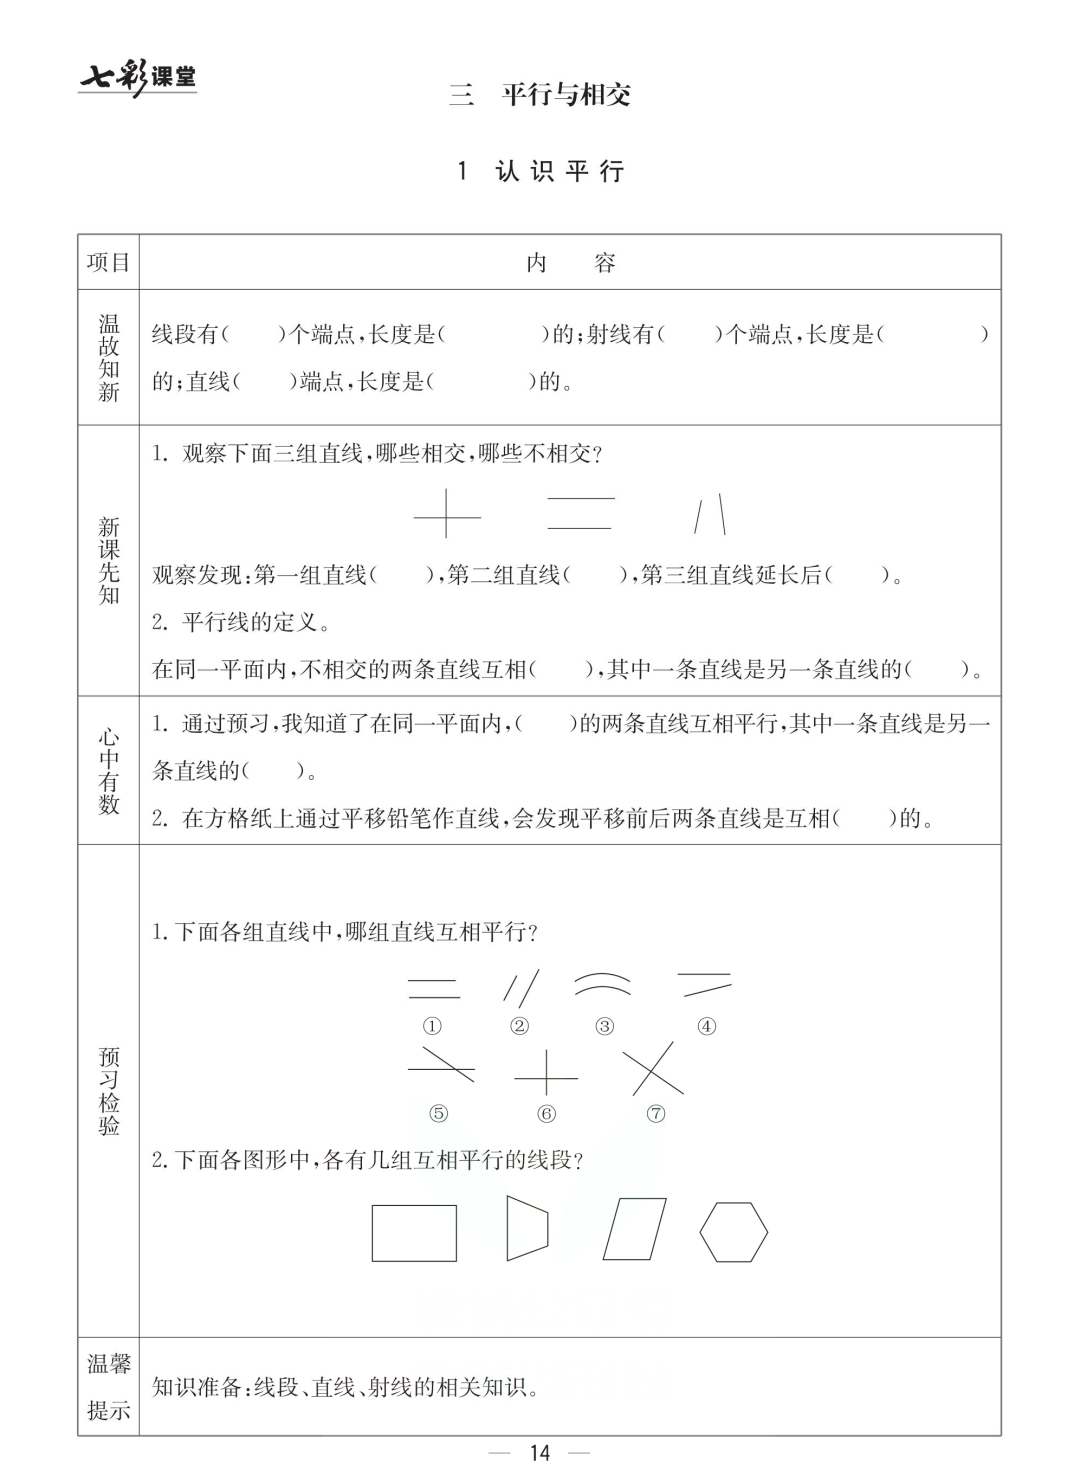 七彩课堂
三 平行与相交
1 认识平行
项目 内 容
温故知新
线段有( )个端点,长度是( )的;射线有( )个端点,长度是( )
的;直线( )端点,长度是( )的。
新课先知
1. 观察下面三组直线,哪些相交,哪些不相交?
观察发现:第一组直线( ),第二组直线( ),第三组直线延长后( )。
2. 平行线的定义。
在同一平面内,不相交的两条直线互相( ),其中一条直线是另一条直线的( )。
心中有数
1. 通过预习,我知道了在同一平面内,( )的两条直线互相平行,其中一条直线是另一
条直线的( )。
2. 在方格纸上通过平移铅笔作直线,会发现平移前后两条直线是互相( )的。
预习检验
1.下面各组直线中,哪组直线互相平行?
① ② ③ ④
⑤ ⑥ ⑦
2.下面各图形中,各有几组互相平行的线段?
温馨
提示
知识准备:线段、直线、射线的相关知识。
— 14 —